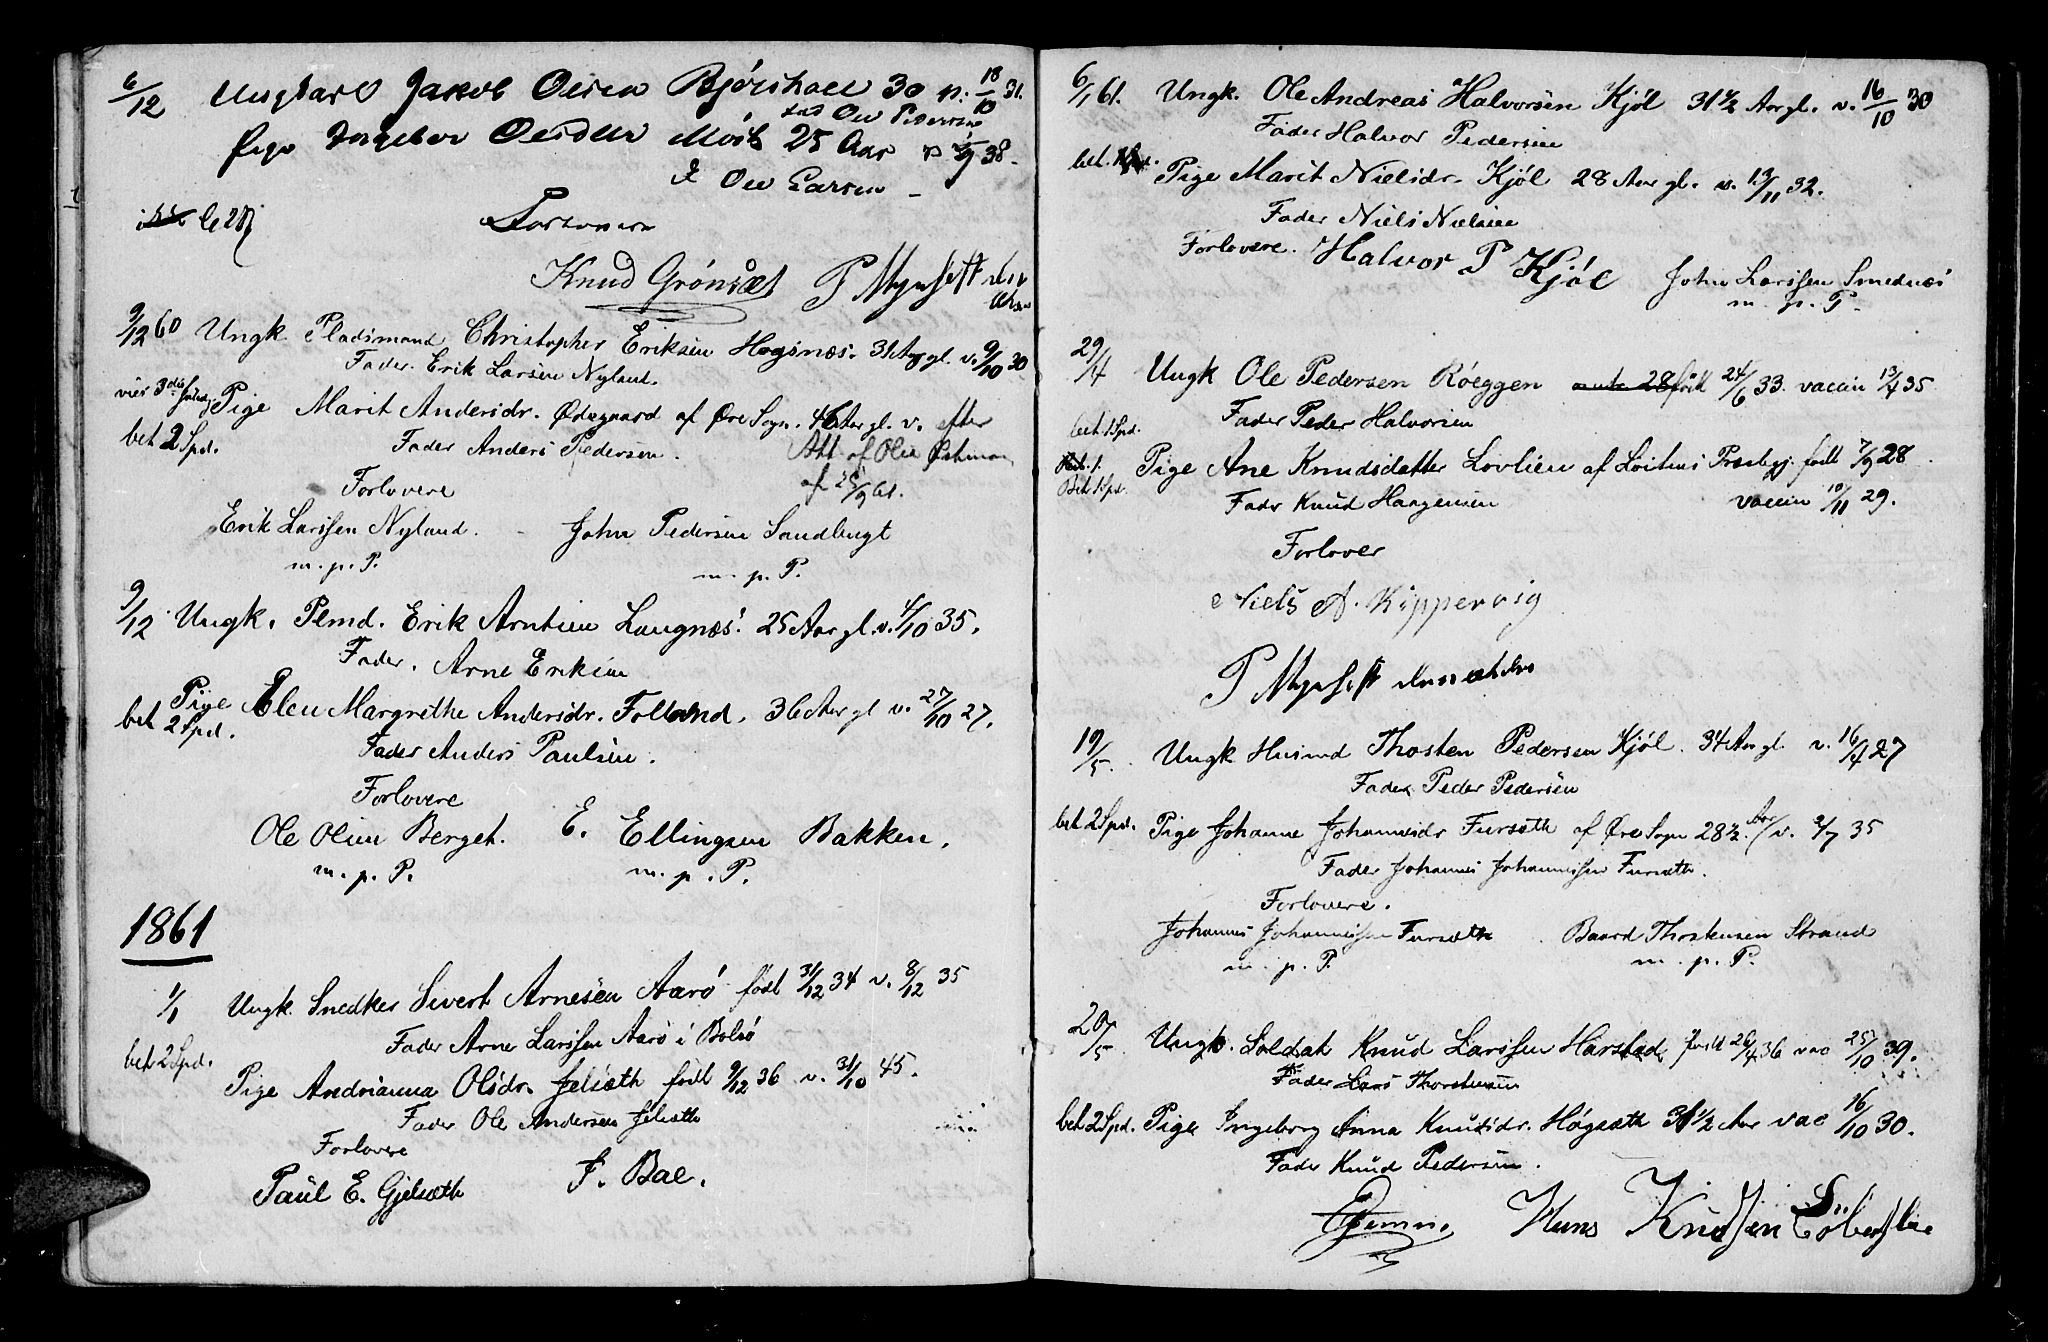 6/12 Ungkarl Jakob Olsen 30 18/10 31.
Ole Pedersen
Pige Ingebor Olsdtr 25 Aar 38.
F Ole Larsen
Forlovere
Knud Grönsæt P Mynset
9/12 60 Ungk Pladsmand Christopher Eriksen Hognæs. 31 Aar gl. v. 9/10 30
Fader. Erik Larsen Nyland.
Pige Marit Andersdr. Ødegaard af Øre Sogn. 46 Aar gl. v. efter
bet 2 Spd. Fader Anders Pedersen. Att. af Ole
af 25/9 61.
Forlovere
Erik Larssen Nyland. John Pedersen Sandbugt
m. p. P. m. p. P.
9/12 Ungk. Plmd. Erik Arntsen Langnæs. 25 Aar gl. v. 4/10 35.
Fader. Arne Eriksen
Pige Elen Margrethe Andersdr. Folland. 36 Aar gl v. 27/10 27.
bet 2 Spd.
Fader Anders Paulsen.
Forlovere
Ole Olsen Berget. E. Ellingsen Bakken.
m. p. P. m. p. P.
1861
1/1 Ungk. Snedker Sivert Arnesen Aarö födt 31/12 34 v. 8/12 35
Fader Arne Larssen Aarö i Bolsö
bet 2 Spd.
Pige Andrianna Olsdr. Jelsæth födt 9/12 36 v. 31/10 45.
Fader Ole Andersen Jelsæth
Forlovere
Paul E. Gjelsæth J. Bae.
6/1 61. Ungk. Ole Andreas Halvorsen Kjöl 31 1/2 Aar gl. v. 16/10 30
Fader Halvor Pedersen
bet.
Pige Marit Nielsdr. Kjöl 28 Aar gl. v. 13/11 32.
Fader Niels Nielsen
Forlovere. Halvor P Kjöl John Larssen Smednæs
m. p. P.
29/4 Ungk Ole Pedersen Röeggen födt 24/6 33. vaccin 13/4 35
Fader Peder Halvorsen
bet. 1 Spd.
Pige Ane Knudsdatter Lovlien af Loitens Præstegj. födt 7/9 28
Bet 1 Spd.
Fader Knud Haagensen vaccin 10/11 29.
Forlover
Niels A. Kippervig
P Mynset
19/5. Ungk Husmd Thosten Pedersen Kjöl. 34 Aar gl. v. 16/4 27
Fader Peder Pedersen
bet 2 Spd. Pige Johanne Johannesdr Fursæth af Øre Sogn 28 1/2 Aar v. 9/7 35
Fader Johannes Johannessen Fursæth.
Forlovere.
Johannes Johannessen Fursæth Baard Thostensen Strand
m. p. P. m. p. P.
20/5 Ungk. Soldat Knud Larssen Harstad, födt 26/4 36 vac 25/10 39.
Fader Lars Thorstensen
bet 2 Spd. Pige Ingeborg Anna Knudsdr. Högsæth 31 1/2 Aar vac 16/10 30.
Fader Knud Pedersen.
Knudsen